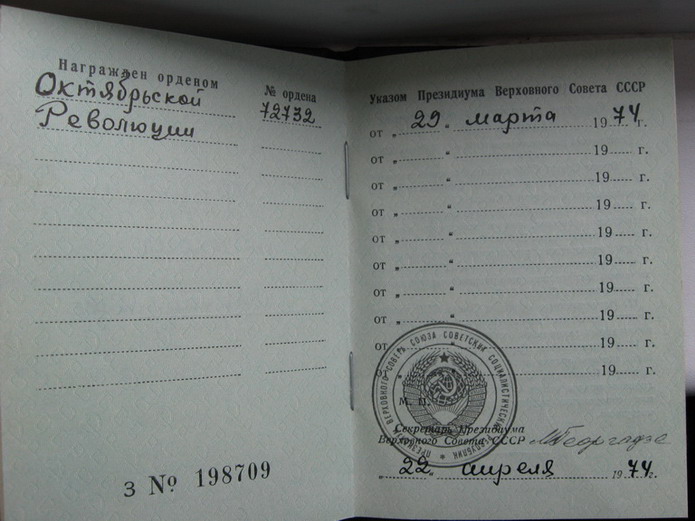 Награжден орденом
№ ордена
Октябрьской
72732
Революции
З № 198709
Указом Президиума Верховного Совета СССР
от „ 29 “ марта 1974 г.
от „ “ 19 г.
от „ “ 19 г.
от „ “ 19 г.
от „ “ 19 г.
от „ “ 19 г.
от „ “ 19 г.
от „ “ 19 г.
от „ “ 19 г.
от „ “ 19 г.
М. П.
Секретарь Президиума
Верховного Совета СССР МГеоргадзе
„ 22 “ апреля 1974 г.
ВЕРХОВНОГО СОВЕТА СОЮЗА СОВЕТСКИХ СОЦИАЛИСТИЧЕСКИХ